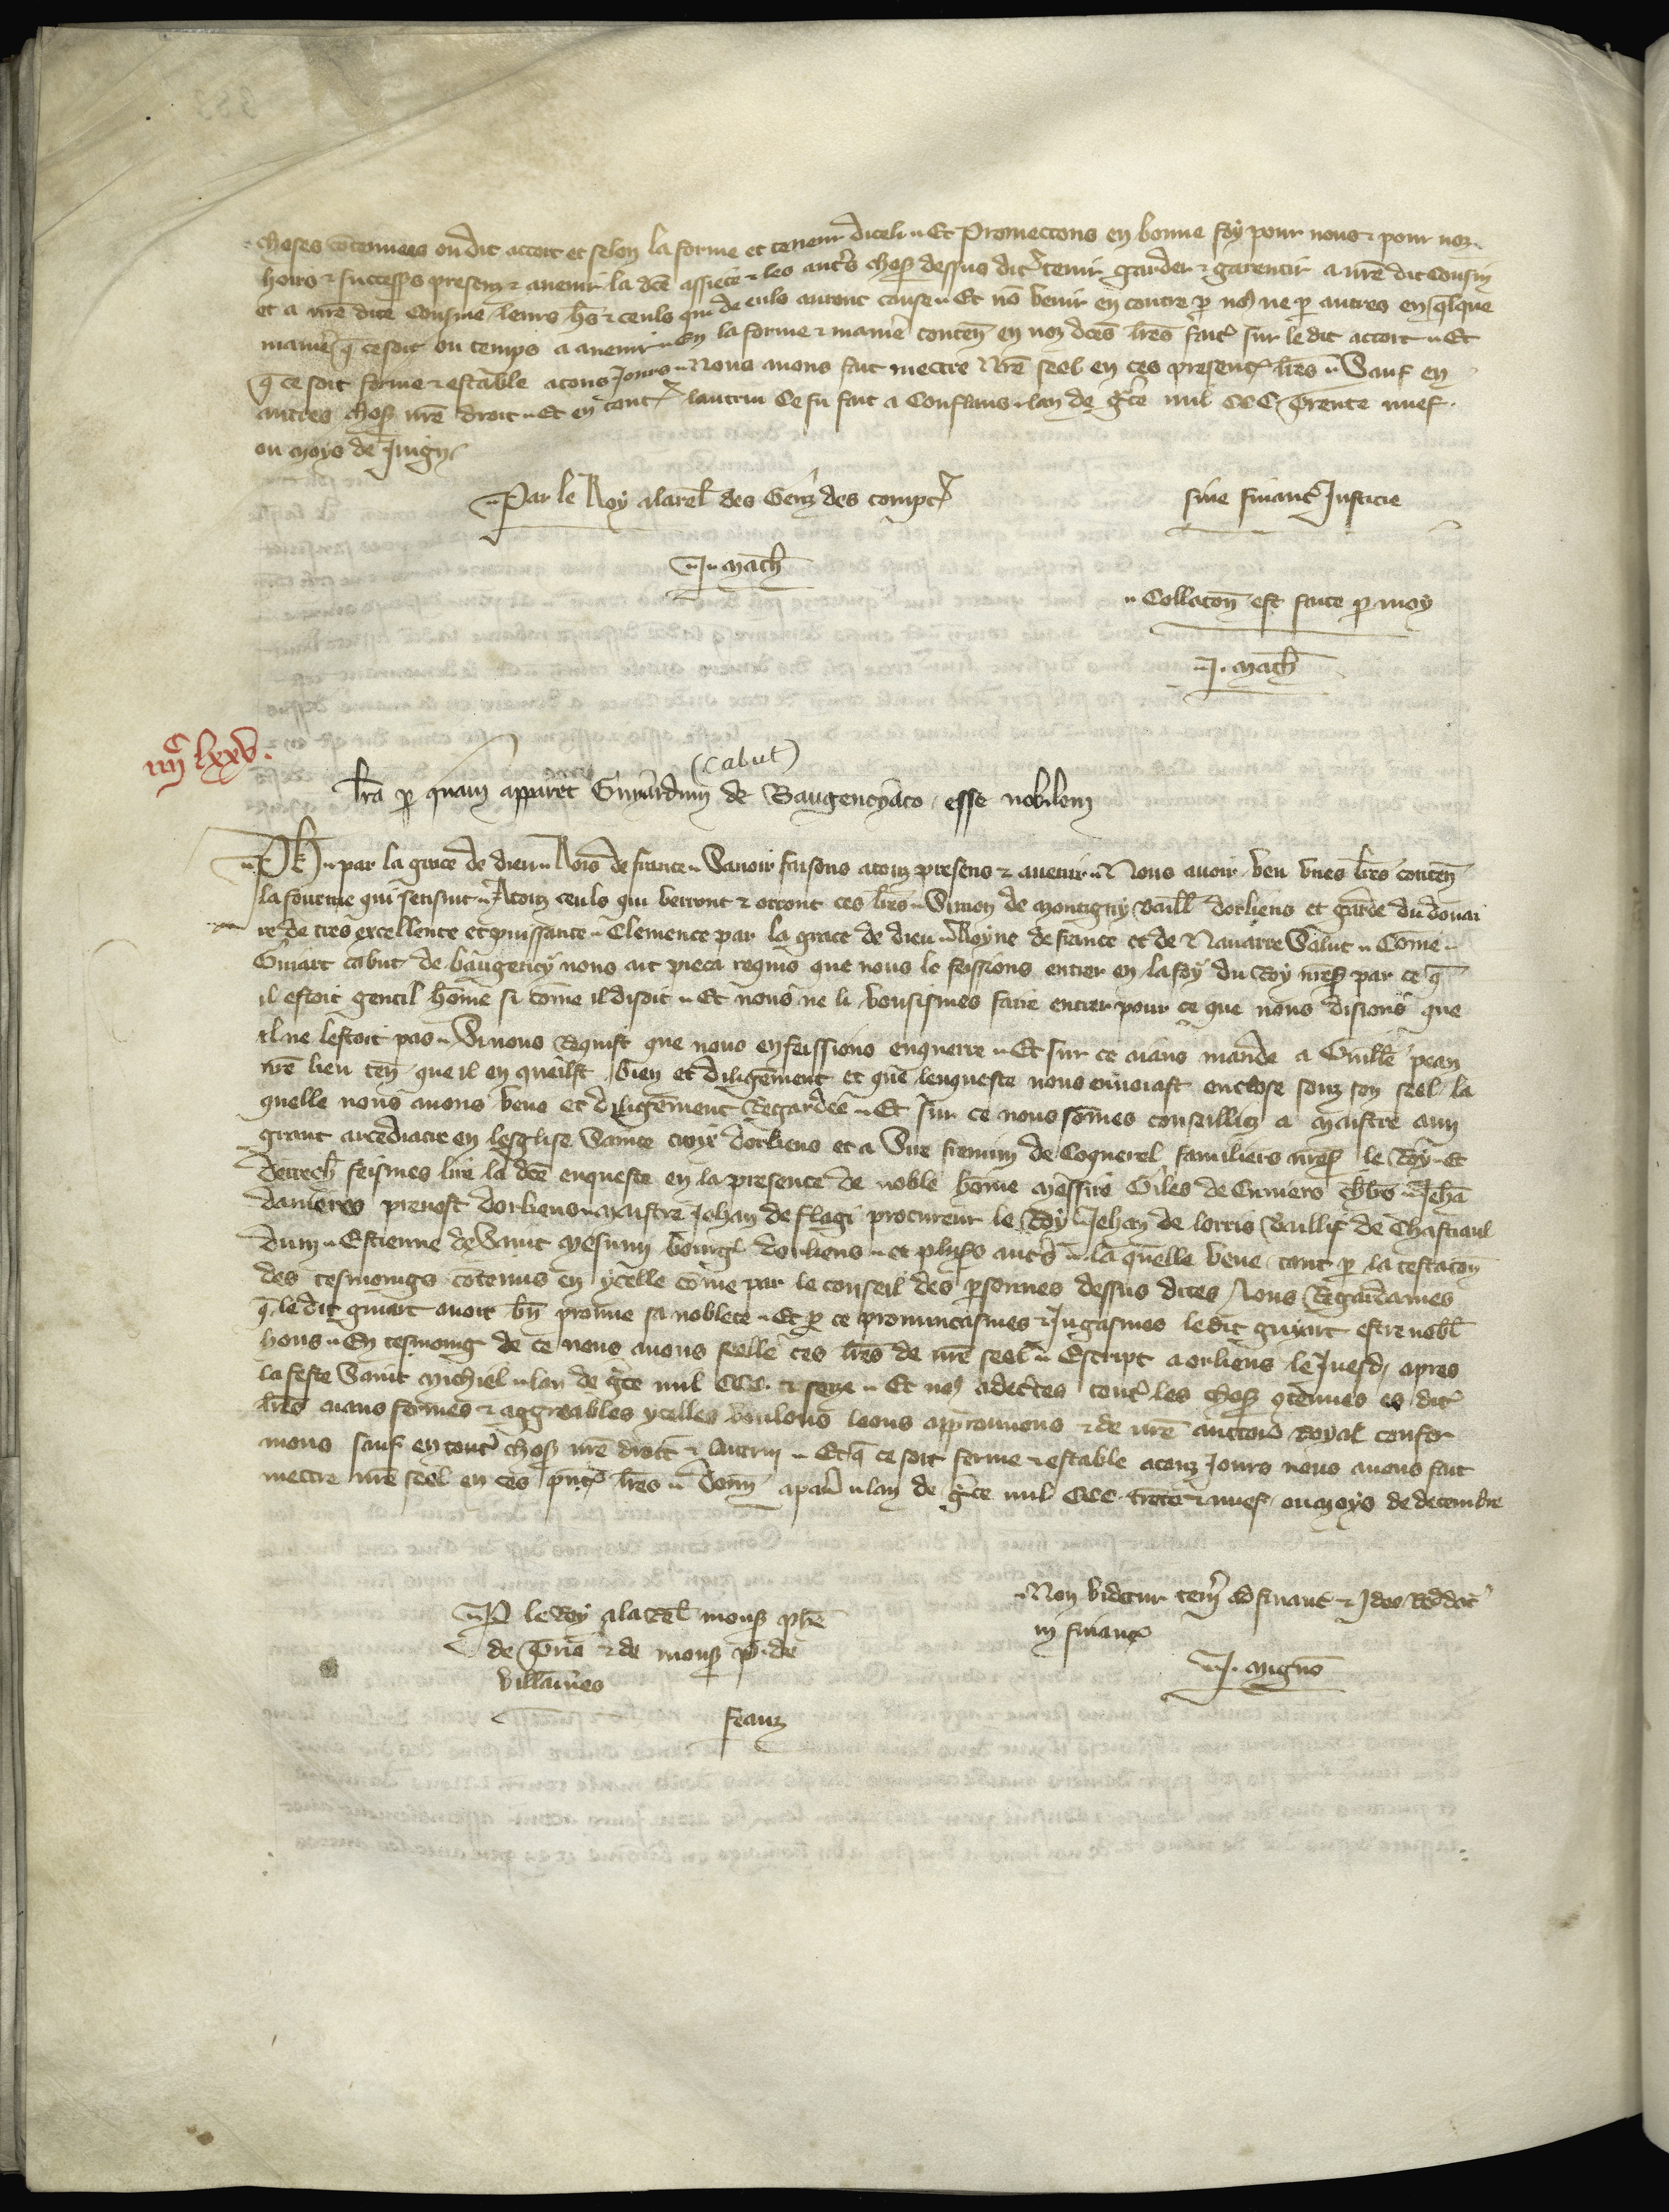 choses contenues ou dit accort et selon la forme et teneur diceli Et Promectons en bonne foy pour nous & pour noz
hoirs & success̃s presenz & avenir la dc̃e assiete & les autr̃s choses dessus dit̃ tenir garder & garentir a nr̃e dit Cousin
et a nr̃e dite Cousine leurs hr̃s & ceuls qui de euls auront cause Et nõ venir en contre p nõ ne p autres en q̃lque
manier̃ q̃ ce soit ou temps a avenir En la forme & manier̃ conteñ en noz dc̃es lr̃es fait̃ sur le dit accort Et
q̃ ce soit ferme & estable atous Jours Nous avons fait mectre Nr̃e seel en ces present̃ lr̃es Sauf en
autres choses nr̃e droit Et en tout̃ lautrui Ce fu fait a Conflans lan de gr̃ce mil CCC Trente nuef
ou moys de Juign
Par le Roy alarel̃ des Genz des compt̃
sine financ̃ Justicie
J. mach̃
Collacoñ est faite p moy
J. mach̃
iiijᶜ lxxv.
(Cabut)
lr̃a p quam apparet Guiardum de Baugenciaco esse nobilem
Ph̃ par la grace de dieu Rois de france Savoir faisons atouz presens & avenir Nous avoir veu unes lr̃es conteñ
la fourme qui sensuit Atouz ceuls qui verront & orront ces lr̃es Simon de Montigny Baill̃ dorliens et garde du douai
re de tres excellente et puissante Clemence par la grace de dieu Royne de france et de Navarre Salut Com̃e
Guiart Cabut de baugency nous ait pieca requis que nous le feissions entrer en la foy du Roy nr̃es par ce q̃
il estoit gentil hom̃e si com̃e il disoit Et nous ne li vousismes faire entrer pour ce que nous disions que
il ne lestoit pas Si nous Requist que nous en feissions enquerre Et sur ce aians mande a Guill̃e pean
nr̃e lieu teñ que il en queilst bien et diligem̃ent et que lenqueste nous envoiast enclose souz son seel la
quelle nous avons veue et diligem̃ent Regardee Et sur ce nous som̃es conseilliez a Maistre
grant arcediacre en leglise Sainte croix dorliens et a Sire fremin de Coquerel familiers nr̃es le Roy Et
derrech̃ feismes lire la dc̃e enqueste en la presence de noble hom̃e Messire Giles de Cumiers ch̃lr̃ Jeh̃a
danieres prevost dorliens maistre Jehan de flagi procureur le Roy Jehan de lorris Baillif de Chastiaul
dum Estienne de Saint Mesmin bourg̃ dorliens et plus̃s autr̃s la quelle veue tant p la testacoñ
des tesmoings cõtenus en ycelle com̃e par le conseil des psonnes dessus dites Nous Regardames
q̃ le dit guiart avoit bñ prouve sa noblece Et p ce pronuncasmes & Jugasmes le dit guyart estre nobl̃
hons En tesmoing de ce nous avons seelle ces lr̃es de nr̃e seel Escript a orliens le Juesdi apres
la feste Saint Michiel lan de gr̃ce mil CCC & seze Et nõ adecr̃tes tout̃ les choses cõtenues es dit̃
lr̃es aians fermes & aggreables ycelles voulons loons approuvons & de nr̃e auctor̃ Royal confer
mons sauf en tout̃ choses nr̃e droit & lautrui Et q̃ ce soit ferme & estable atouz Jours nous avons fait
mectre nr̃e seel en ces pñt̃ lr̃es Doñ a par̃ lan de gr̃ce mil CCC trẽte & nuef ou moys de decembre
P le Roy ala rel̃ mons̃ ph̃e
de Trie & de mons̃ P. de
villaines
feauz
Non videtur teñi ad financ̃ & Ideo Reddat̃
sine financ̃
J. mignõ